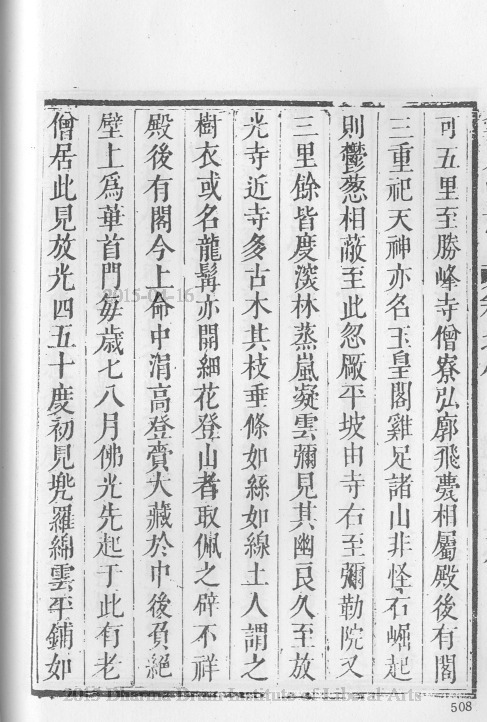 可五里至勝峰寺僧寮弘廓飛甍相屬殿後有閣
三重祀天神亦名玉皇閣雞足諸山非怪石崛起
則鬱葱相蔽至此忽厰平坡由寺右至彌勒院又
三里餘皆度深林蒸嵐凝雲彌見其幽良久至放
光寺近寺多古木其枝垂條如絲如線土人謂之
樹衣或名龍髯亦開細花登山者取佩之辟不祥
殿後有閣今上命中涓高登賫大藏於中後負絕
壁上爲華首門每歲七八月佛光先起于此有老
僧居此見放光四五十度初見兠羅綿雲平鋪如
508
2015 Dharma Drum Institute of Liberal Arts